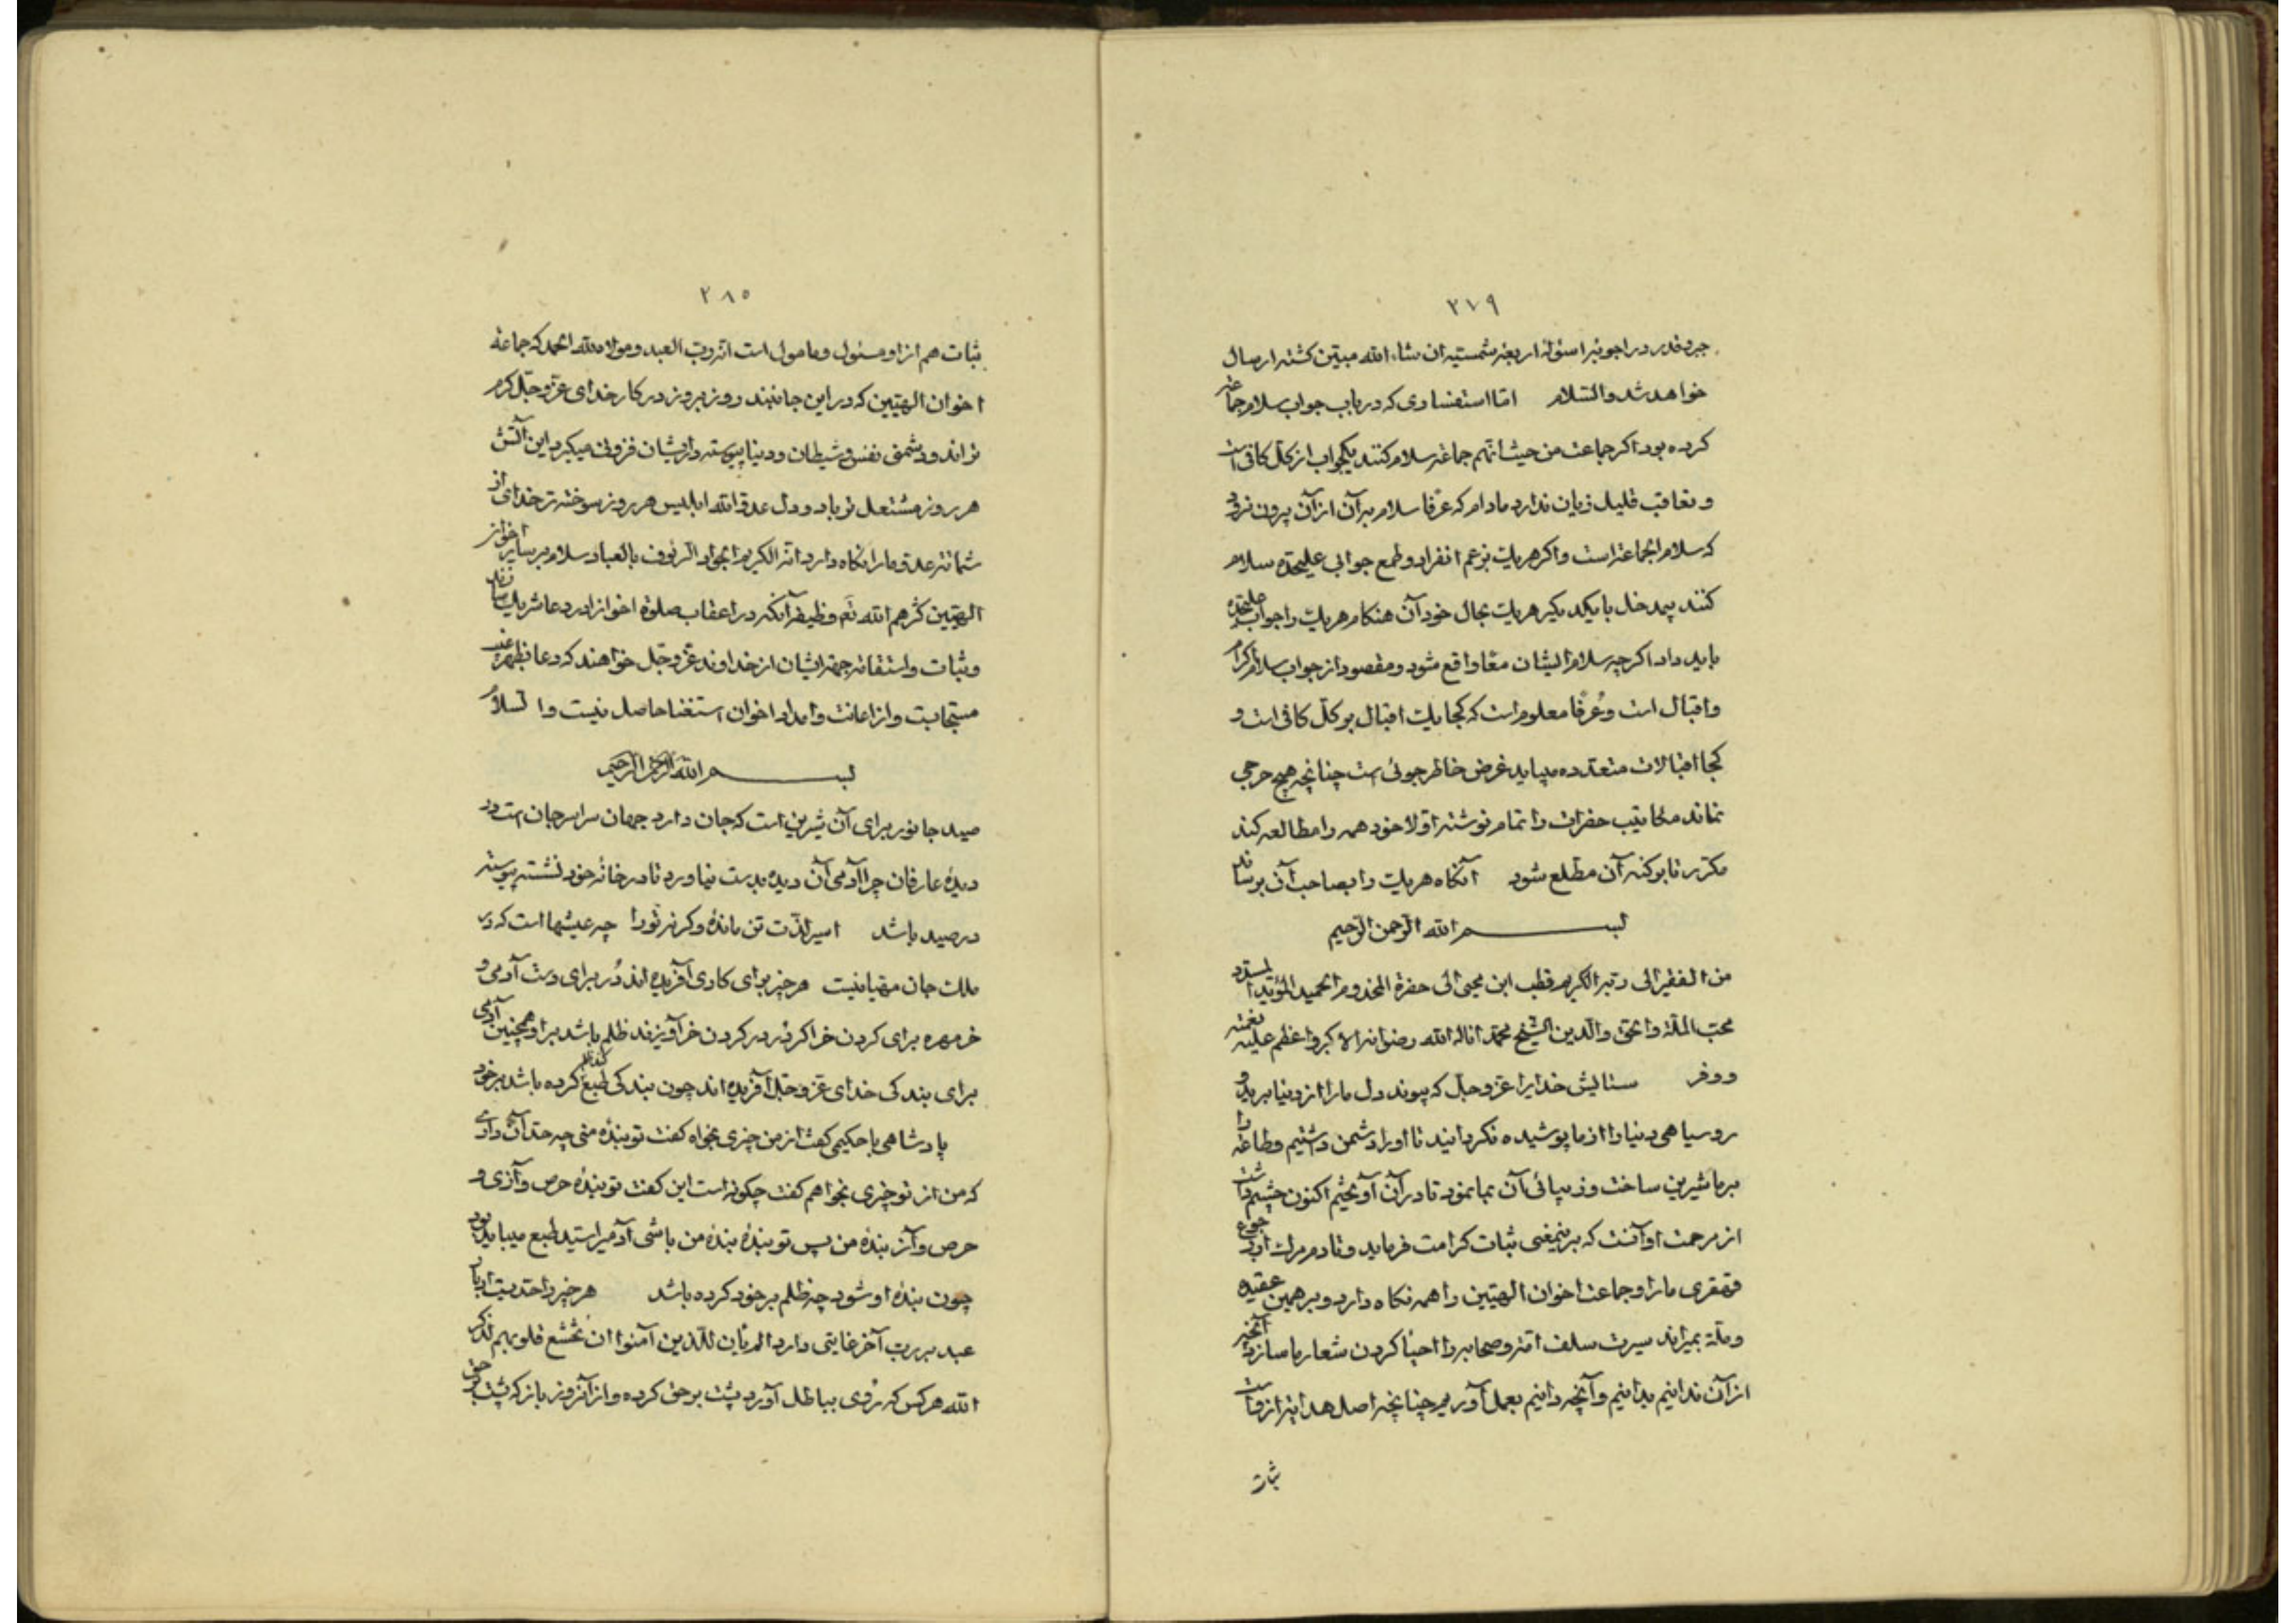 ۲۷۹
جبر و قدر در اجوبهٔ اسئولهٔ اربعهٔ شمسیه ان شاء الله مبین گشته ارسال
خواهد شد والسلام اما استفساری که در باب جواب سلام جماعة
کرده بود اگر جماعت من حیث انهم جماعة سلام کنند یکجواب از کل کافی است
و تعاقب قلیل زیان ندارد مادام که عرفا سلام بر آن از آن برون نرود
که سلام الجماعة است و اگر هر یک بزعم انفراد و طمع جوابی علیحده سلام
کنند بیمدخل با یکدیگر هر یک بحال خود آن هنگام هر یک را جواب علیحده
باید داد اگر چه سلام ایشان معا واقع شود و مقصود از جواب سلام اکرام
و اقبال است و عرفا معلوم است که کجا یک اقبال بر کل کافی است و
کجا اقبالات متعدده میباید غرض خاطر جوئی است چنانچه هیچ حرجی
نماند مکاتیب حضرات را تمام نوشته اولا خود همه را مطالعه کند
مکرر تا بر کنه آن مطلع شود آنگاه هر یک را بصاحب آن برساند
بسم الله الرحمن الرحیم
من الفقیر الی ربه الکریم قطب ابن محیی الی حضرة المخدوم الحمید المؤید
محب الملة والحق والدین الشیخ محمد اناله الله رضوانه الاکبر و اعظم علیه نعمته
و وفر ستایش خدایرا عز و جل که پیوند دل ما را از دنیا برید و
روسیاهی دنیا را از ما پوشیده نگردانید تا او را دشمن داشتیم و طاعة را
بر ما شیرین ساخت و زیبائی آن بما نمود تا در آن آویختیم اکنون چشم داشت
از مرحمت او آنست که بر نیمعنی ثبات کرامت فرماید و تا دم مرگ از رجوع
قهقری ما را و جماعت اخوان الهیین را همه نگاه دارد و بر همین عقیده
و ملة بمیراند سیرت سلف امة و صحابه را احیا کردن شعار ما سازد آنچه
از آن ندانیم بدانیم و آنچه دانیم بعمل آوریم چنانچه اصل هدایة از وست
ثبات
۲۸۰
ثبات هم از او مسئول و مامول است انه رب العبد و مولاه لله الحمد که جماعة
اخوان الهیین که در این جانبند روز بروز در کار خدای عز و جل گرم
تراند و دشمنی نفس و شیطان و دنیا پیوسته در ایشان فزونی میگیرد این آتش
هر روز مشتعل تر باد و دل عدو الله ابلیس هر روز سوخته تر خدای از
شماتة عدو ما را نگاه دارد انه الکریم الجواد الرئوف بالعباد سلام بر سایر اخوان
الهیین کثرهم الله تع وظیفه آنکه در اعقاب صلوة اخوانرا در دعا شریک سازند
و ثبات و استقامة جهة ایشان از خداوند عز و جل خواهند که دعا بظهر غیب
مستجابست و از اعانت و امداد اخوان استغنا حاصل نیست والسلام
بسم الله الرحمن الرحیم
صید جانور برای آن شیرین است که جان دارد جهان سراسر جان است در
دیدهٔ عارفان چرا آدمی آن دیده بدست نیاورد تا در خانهٔ خود نشسته پیوسته
در صید باشد اسیر لذت تن ماندهٔ وگرنه تورا چه عیشها است که در
ملک جان مهیا نیست هر چیز برای کاری آفریده اند در برای دست آدمی و
خر مهره برای گردن خر اگر در در گردن خر آویزند ظلم باشد بر او همچنین آدمی
برای بندگی خدای عز و جل آفریده اند چون بندگی طبع کند ظلم کرده باشد بر خود
پادشاهی با حکیمی گفت از من چیزی بخواه گفت تو بندهٔ منی چه حد آن داری
که من از تو چیزی بخواهم گفت چگونه است این گفت تو بندهٔ حرص و آزی و
حرص و آز بندهٔ من پس تو بندهٔ بندهٔ من باشی آدمیرا سید طبع میباید بود
چون بندهٔ او شود چه ظلم بر خود کرده باشد هر چیز را حدیست ادبار
عبد بر رب آخر غایتی دارد الم یان للذین آمنوا ان تخشع قلوبهم لذکر
الله هر کس که روی بباطل آورد پشت بر حق کرده و از آنروز باز که پشت بر حق